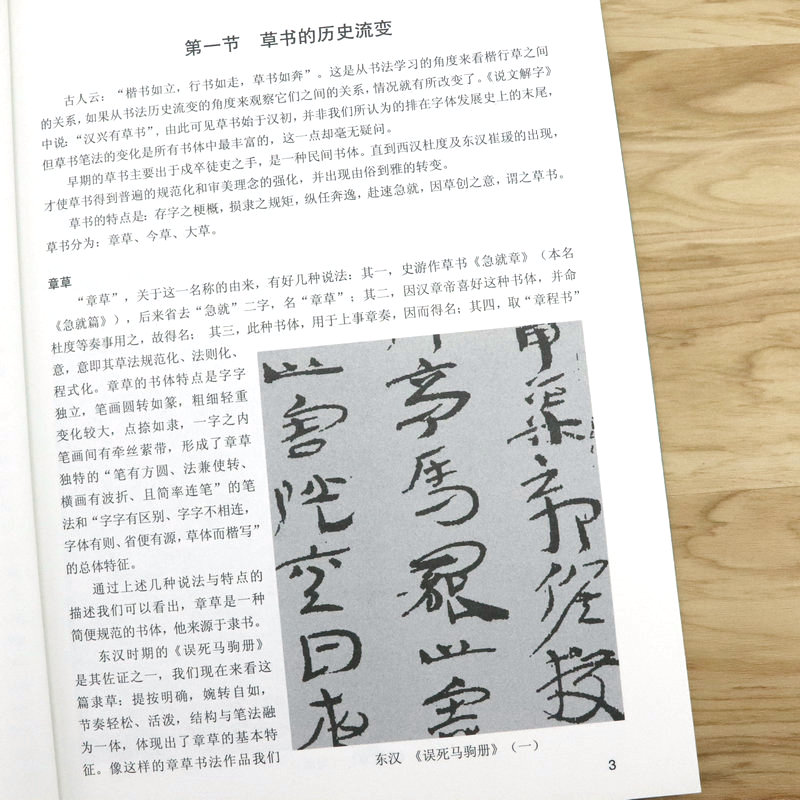 第一节 草书的历史流变
古人云：“楷书如立，行书如走，草书如奔”。这是从书法学习的角度来看楷行草之间
的关系，如果从书法历史流变的角度来观察它们之间的关系，情况就有所改变了。《说文解字》
中说：“汉兴有草书”，由此可见草书始于汉初，并非我们所认为的排在字体发展史上的末尾，
但草书笔法的变化是所有书体中最丰富的，这一点却毫无疑问。
早期的草书主要出于戍卒徒吏之手，是一种民间书体。直到西汉杜度及东汉崔瑗的出现，
才使草书得到普遍的规范化和审美理念的强化，并出现由俗到雅的转变。
草书的特点是：存字之梗概，损隶之规矩，纵任奔逸，赴速急就，因草创之意，谓之草书。
草书分为：章草、今草、大草。
章草
“章草”，关于这一名称的由来，有好几种说法：其一，史游作草书《急就章》（本名
《急就篇》），后来省去“急就”二字，名“章草”；其二，因汉章帝喜好这种书体，并命
杜度等奏事用之，故得名；其三，此种书体，用于上事章奏，因而得名；其四，取“章程书”
意，意即其草法规范化、法则化、
程式化。章草的书体特点是字字
独立，笔画圆转如篆，粗细轻重
变化较大，点捺如隶，一字之内
笔画间有牵丝萦带，形成了章草
独特的“笔有方圆、法兼使转、
横画有波折、且简率连笔”的笔
法和“字字有区别、字字不相连，
字体有则、省便有源，草体而楷写”
的总体特征。
通过上述几种说法与特点的
描述我们可以看出，章草是一种
简便规范的书体，他来源于隶书。
东汉时期的《误死马驹册》
是其佐证之一，我们现在来看这
篇隶草：提按明确，婉转自如，
节奏轻松、活泼，结构与笔法融
为一体，体现出了章草的基本特
征。像这样的章草书法作品我们
东汉 《误死马驹册》（一）
3